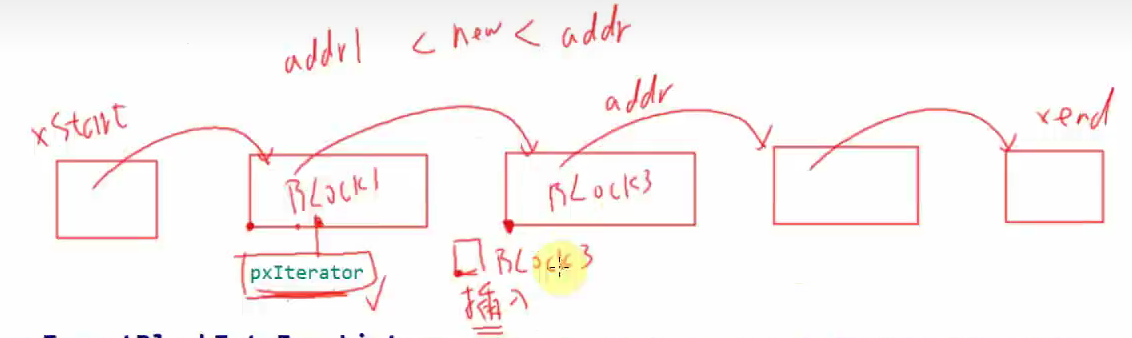 addr1 < new < addr
xStart
addr
xend
BLock1
BLock3
pxIterator
BLock3
插入